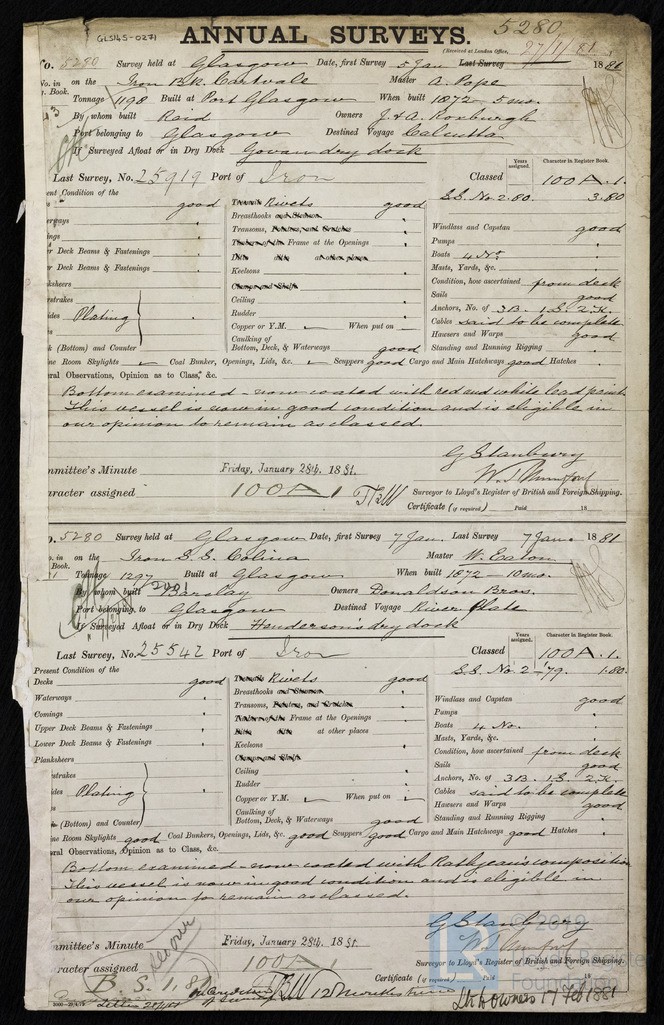 GLS145-0271
ANNUAL SURVEYS.
5280
(Received at London Office, 27/1/81
No. 5280 Survey held at Glasgow Date, first Survey 5 Jan Last Survey 1881
No. in on the Iron Bk. Cartvale Master A. Pope
Book. Tonnage 1198 Built at Port Glasgow When built 1872 5 mo.
By whom built Reid Owners J. & A. Roxburgh
Port belonging to Glasgow Destined Voyage Calcutta
If Surveyed Afloat or in Dry Dock Govan dry dock
Last Survey, No. 25919 Port of Iron Classed
Years assigned. Character in Register Book.
100 A. 1.
S.S. No. 2. 80. 3.80
Present Condition of the
good
Rivets good
Breasthooks
Transoms,
Frame at the Openings
Deck Beams & Fastenings
Deck Beams & Fastenings
Keelsons
Ceiling
Rudder
Plating
Copper or Y.M. When put on
Caulking of
Bottom, Deck, & Waterways good
(Bottom) and Counter
Windlass and Capstan good
Pumps
Boats 4 No.
Masts, Yards, &c.
Condition, how ascertained from deck
Sails good
Anchors, No. of 3 B. 1 S. 2 K.
Cables said to be complete
Hawsers and Warps good
Standing and Running Rigging
Room Skylights Coal Bunker, Openings, Lids, &c. Scuppers good Cargo and Main Hatchways good Hatches
General Observations, Opinion as to Class, &c.
Bottom examined - now coated with red and white lead paint.
This vessel is now in good condition and is eligible in
our opinion to remain as classed.
G Stanbury
Committee's Minute Friday, January 28th, 1881.
Character assigned 100A1
Surveyor to Lloyd's Register of British and Foreign Shipping.
Certificate (if required) Paid 18
5280 Survey held at Glasgow Date, first Survey 7 Jan. Last Survey 7 Jan. 1881
No. in on the Iron S.S. Colina Master W. Eaton
Book. Tonnage 1297 2001 Built at Glasgow When built 1872 - 10 mo.
By whom built Barclay Owners Donaldson Bros.
Port belonging to Glasgow Destined Voyage River Plate
If Surveyed Afloat or in Dry Dock Henderson's dry dock
Last Survey, No. 25542 Port of Iron Classed
Years assigned. Character in Register Book.
100 A. 1.
S.S. No. 2 - '79. 1.80.
Present Condition of the
Decks good
Waterways
Comings
Upper Deck Beams & Fastenings
Lower Deck Beams & Fastenings
Planksheers
Plating
(Bottom) and Counter
Rivets good
Breasthooks
Transoms,
Frame at the Openings
at other places
Keelsons
Ceiling
Rudder
Copper or Y.M. When put on
Caulking of
Bottom, Deck, & Waterways good
Windlass and Capstan good
Pumps
Boats 4 No.
Masts, Yards, &c.
Condition, how ascertained from deck
Sails good
Anchors, No. of 3 B. 1 S. 2 K.
Cables said to be complete
Hawsers and Warps good
Standing and Running Rigging
Room Skylights good Coal Bunkers, Openings, Lids, &c. good Scuppers good Cargo and Main Hatchways good Hatches
General Observations, Opinion as to Class, &c.
Bottom examined now coated with Rathjean's composition
This vessel is now in good condition and is eligible in
our opinion to remain as classed.
G Stanbury
Committee's Minute Friday, January 28th, 1881.
Character assigned 100A1
Surveyor to Lloyd's Register of British and Foreign Shipping.
Certificate (if required) Paid 18
B.S. 1,81
12 months
Ltr to Owners 17 Feb 1881
© 2019